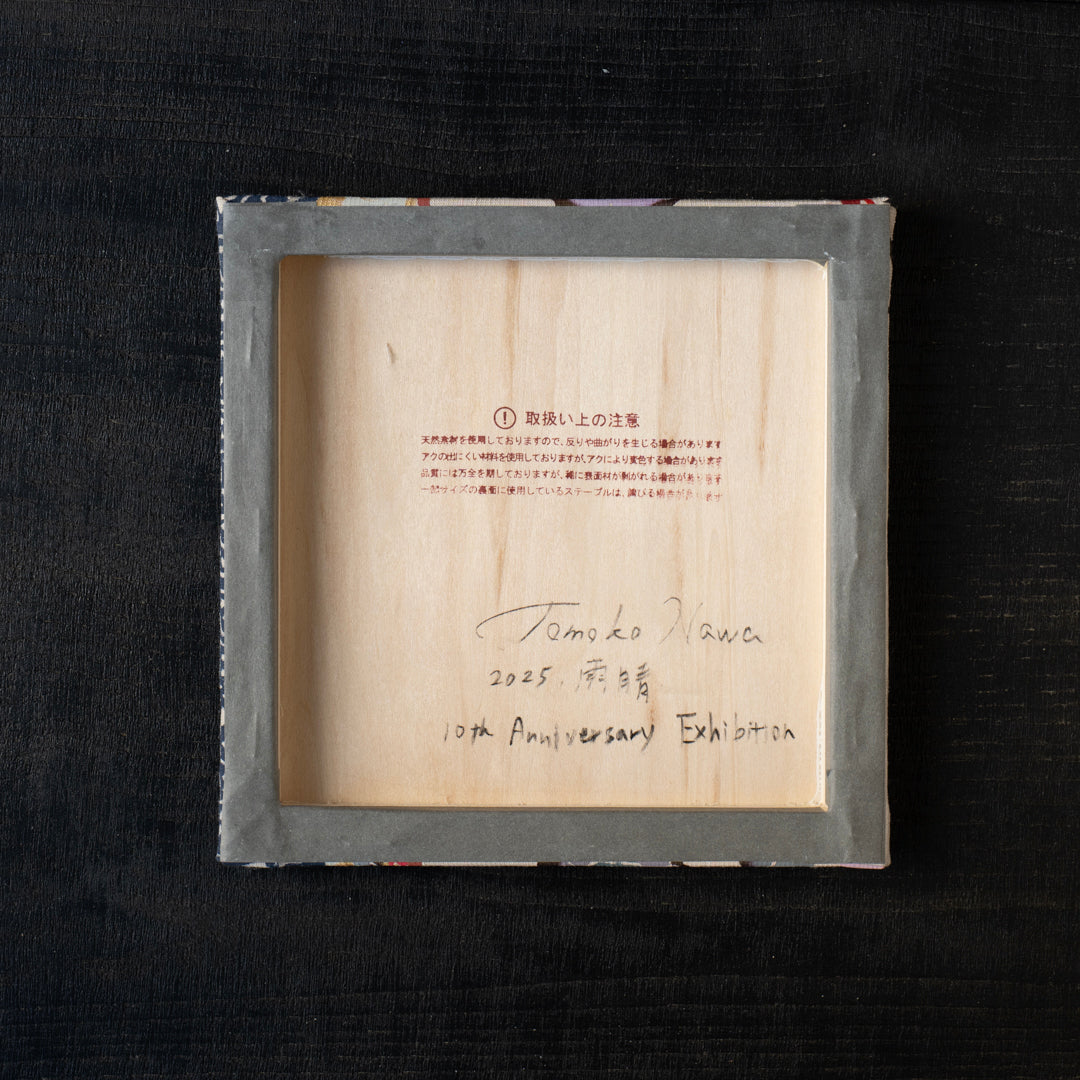 ! 取扱い上の注意
天然素材を使用しておりますので、反りや曲がりを生じる場合があります
アクの出にくい材料を使用しておりますが、アクにより変色する場合があります
品質には万全を期しておりますが、稀に表面材が剥がれる場合があります
一部サイズの裏面に使用しているステープルは、錆びる場合があります
Tomoko Nawa
2025. 雨晴
10th Anniversary Exhibition